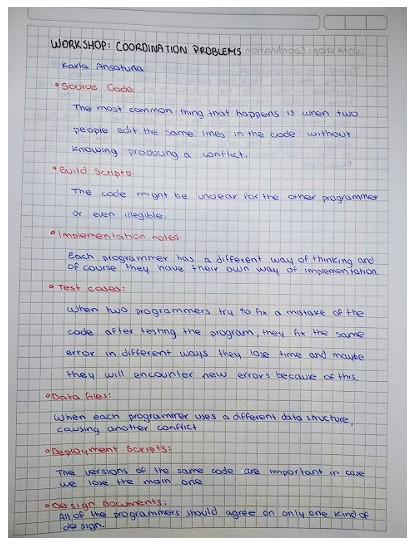 WORKSHOP: COORDINATION PROBLEMS
Karla
• Source Code:
The most common thing that happens is when two
people edit the same lines in the code without
knowing producing a conflict.
• Build Scripts
The code might be unclear for the other programmer
or even illegible.
• Implementation notes:
Each programmer has a different way of thinking and
of course they have their own way of implementation
• Test cases:
When two programmers try to fix a mistake of the
code after testing the program, they fix the same
error in different ways they lose time and maybe
they will encounter new errors because of this.
• Data files:
When each programmer uses a different data structure,
causing another conflict
• Deployment Scripts:
The versions of the same code are important in case
we lose the main one
• Design documents:
All of the programmers should agree on only one kind of
design.